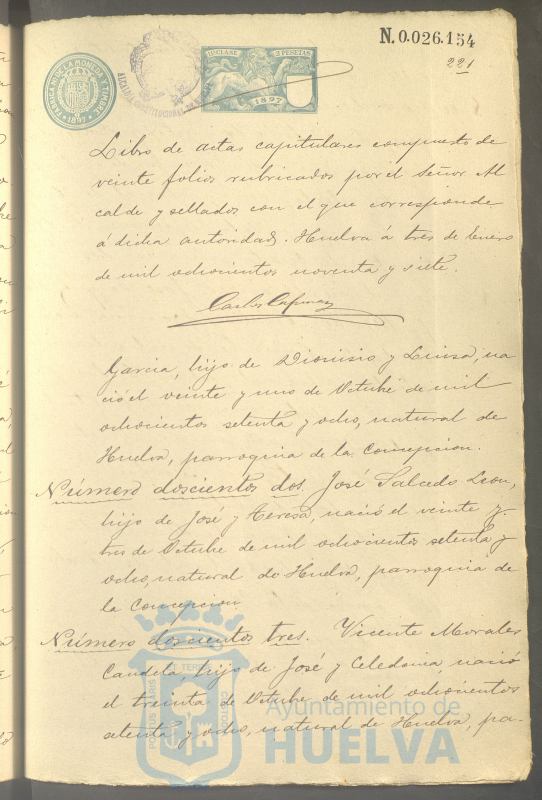 N. 0.026.154
221
11ª CLASE 2 PESETAS
1897
FABRICA DE LA MONEDA Y TIMBRE
1897
Libro de actas capitulares compuesto de
veinte folios rubricados por el Señor Al
calde y sellados con el que corresponde
á dicha autoridad. Huelva á tres de Enero
de mil ochocientos noventa y siete.
Carlos
Garcia, hijo de Dionisio y Luisa, na
ció el veinte y uno de Octubre de mil
ochocientos setenta y ocho, natural de
Huelva, parroquia de la Concepcion.
Número doscientos dos. José Salcedo Leon,
hijo de José y Teresa, nació el veinte y
tres de Octubre de mil ochocientos setenta y
ocho, natural de Huelva, parroquia de
la Concepcion
Número doscientos tres. Vicente Morales
Candela, hijo de José y Celedonia, nació
el treinta de Octubre de mil ochocientos
setenta y ocho, natural de Huelva, pa-
Ayuntamiento de
HUELVA